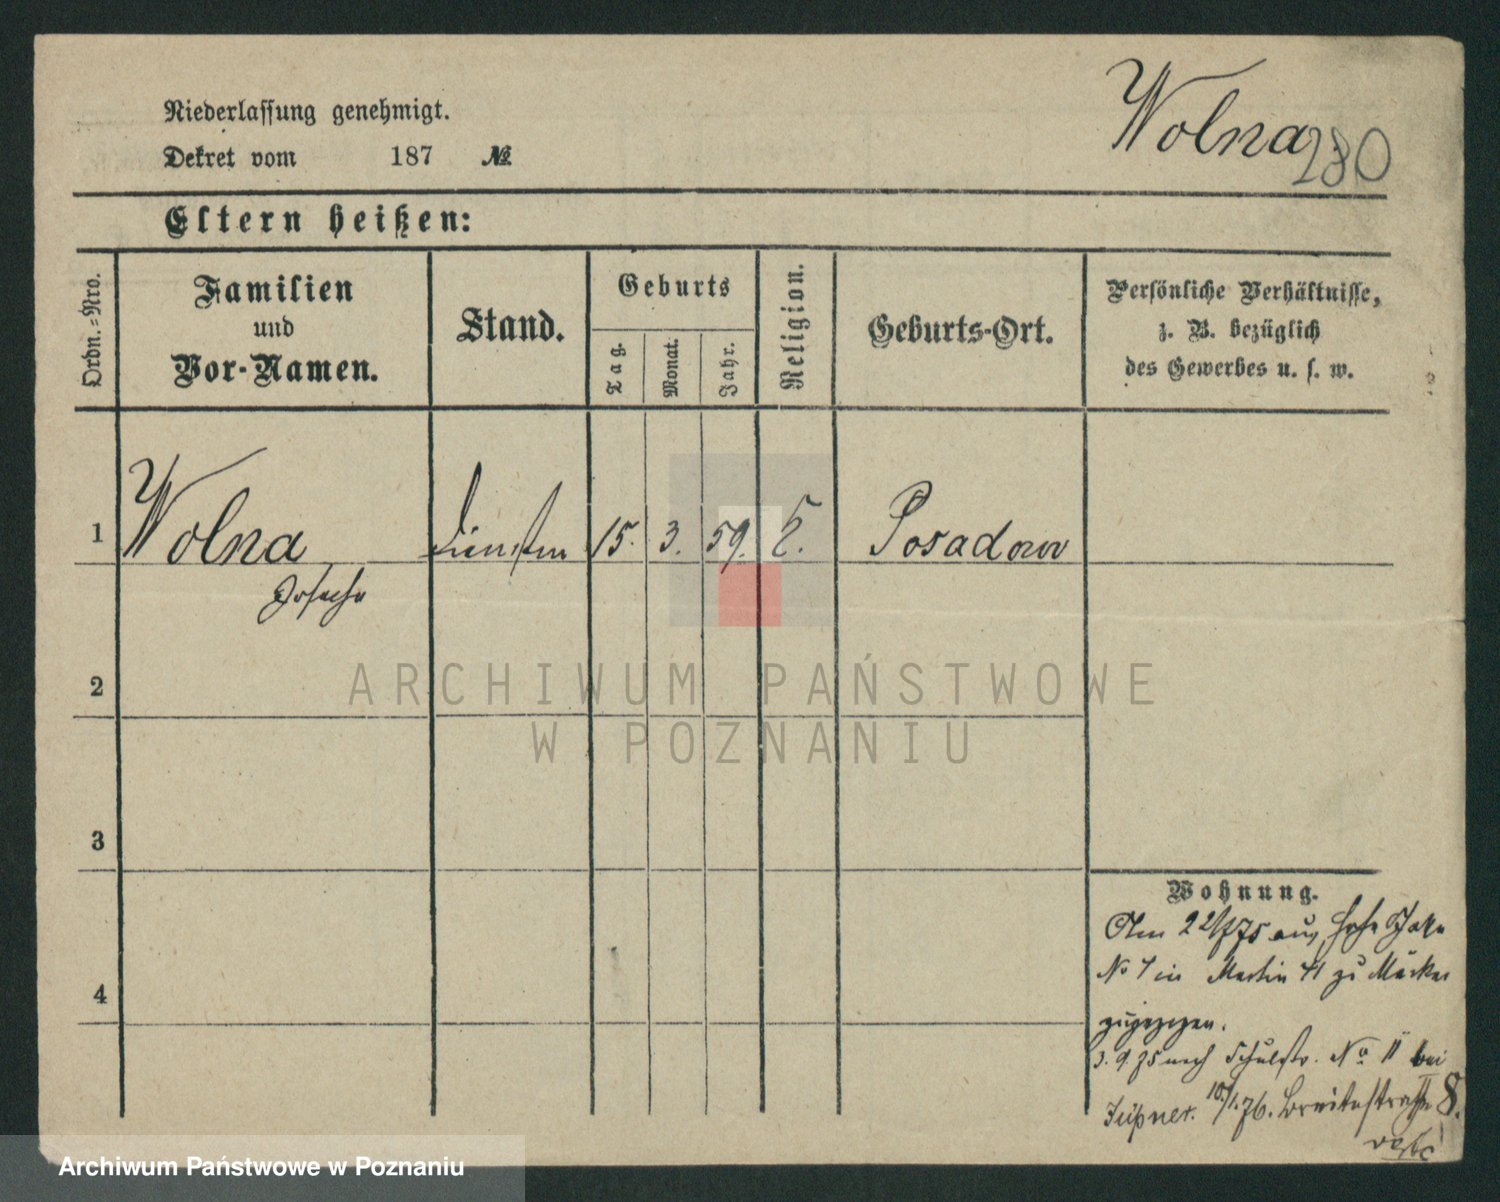 Wolna
280
Niederlassung genehmigt.
Dekret vom 187 №
Eltern heißen:
Ordn.=Nro.
Familien
und
Vor-Namen.
Stand.
Geburts
Tag.
Monat.
Jahr.
Religion.
Geburts-Ort.
Persönliche Verhältnisse,
z. B. bezüglich
des Gewerbes u. s. w.
1 Wolna 15. 3. 59. Posadowo
Josepha
2
3
4
Wohnung.
Am 22/7 75 aus
No in Martin 41 zu
zugezogen.
3. 9. 75 nach Schulstr. No 11 bei
10/1. 76. Breitestraße 8.
ARCHIWUM PAŃSTWOWE
W POZNANIU
Archiwum Państwowe w Poznaniu